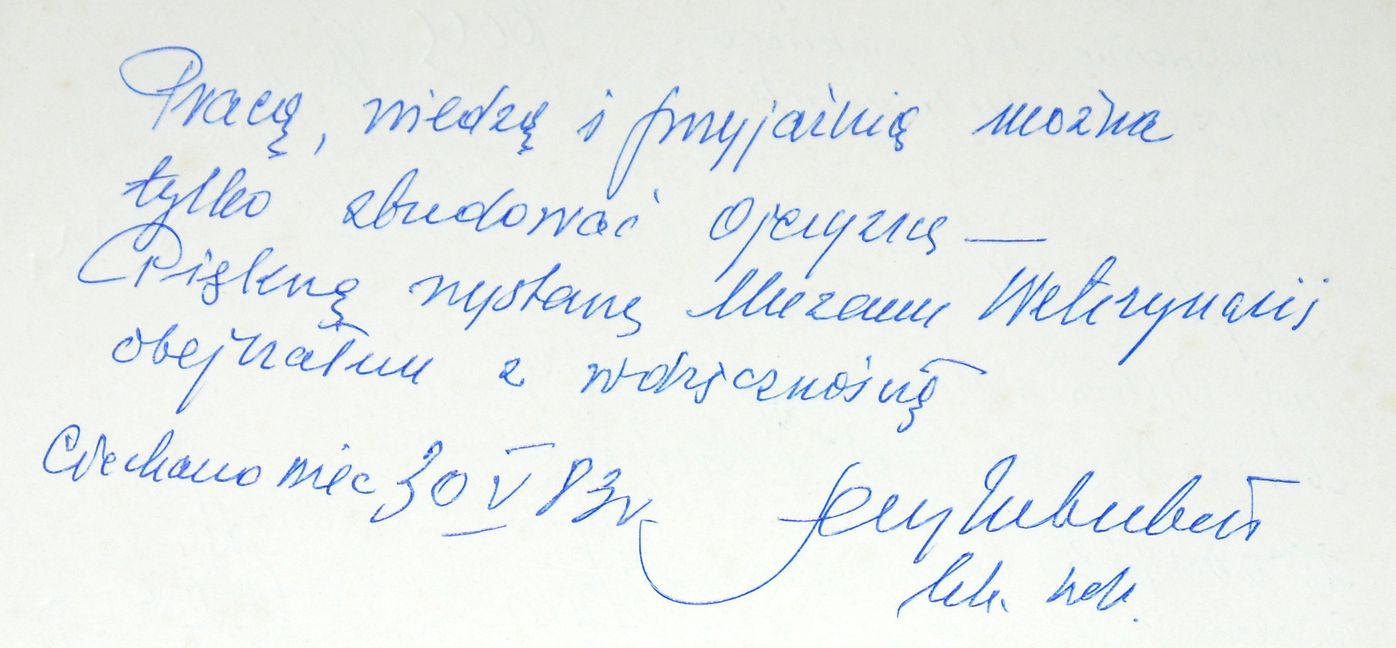 Pracą, wiedzą i przyjaźnią można
tylko zbudować Ojczyznę —
Piękną wystawę Muzeum Weterynarii
obejrzałem z wdzięcznością
Ciechanowiec 30 V 83r. Jerzy
lek. wet.